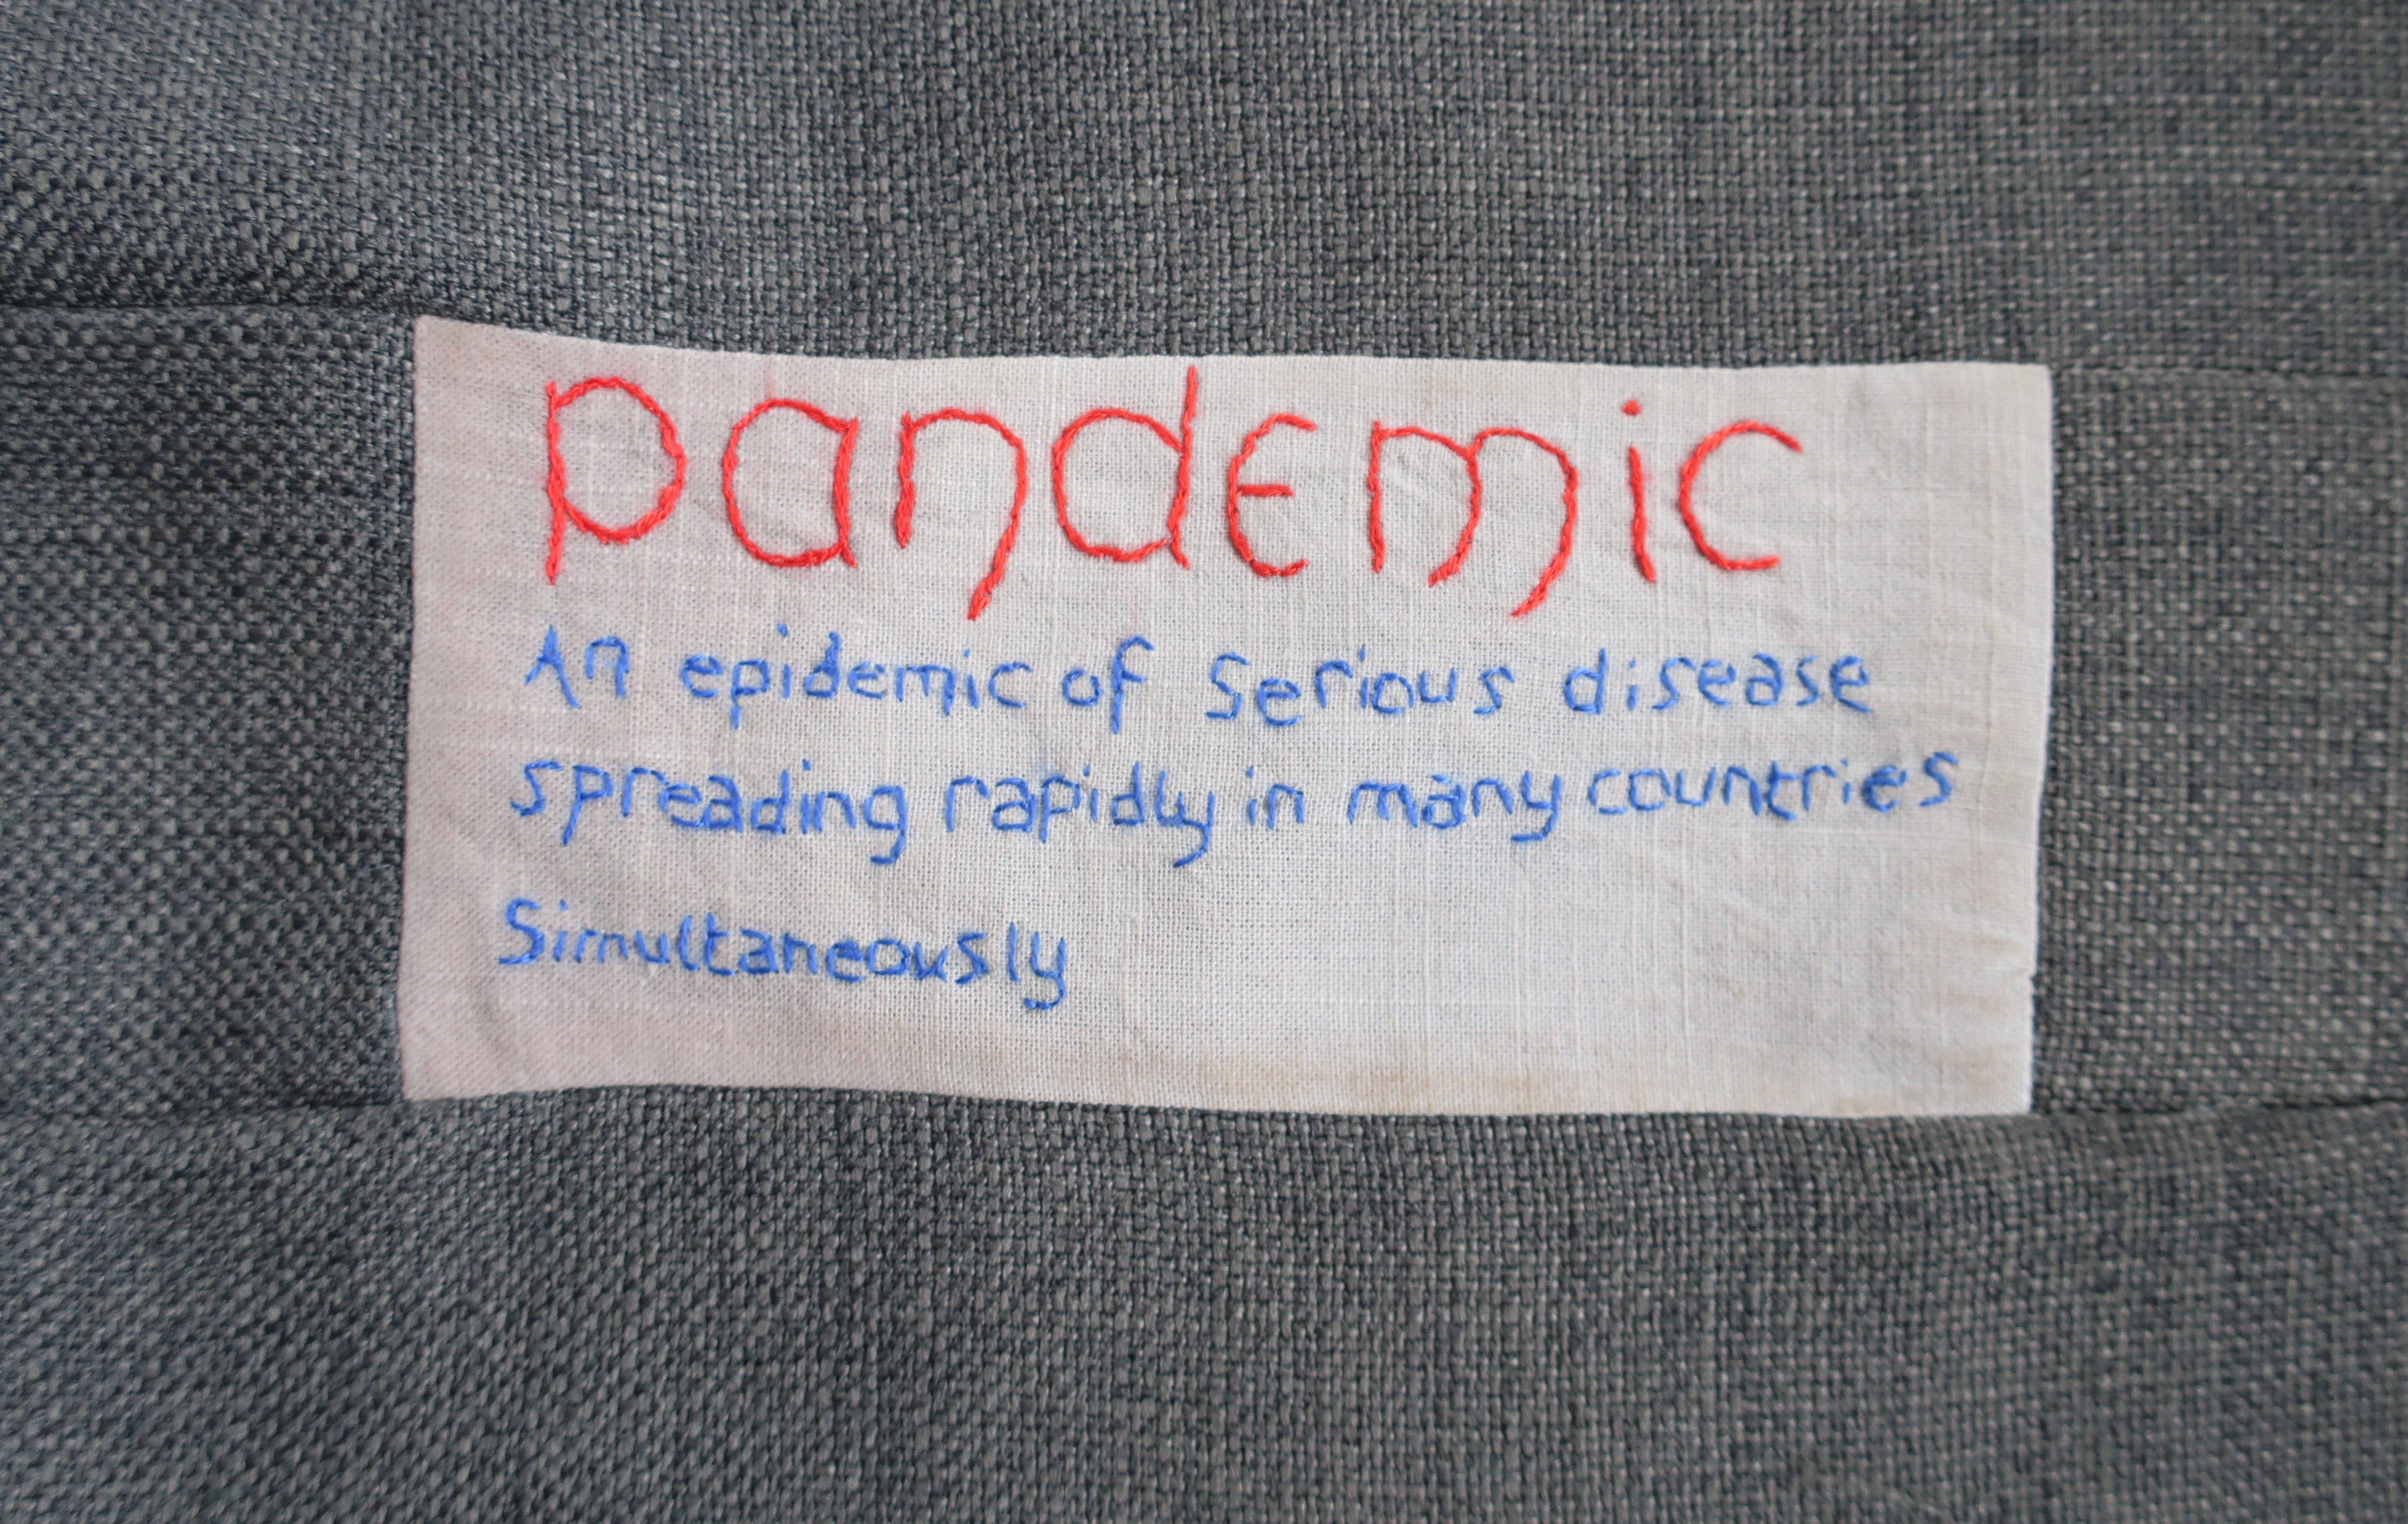 pandemic
An epidemic of serious disease
spreading rapidly in many countries
Simultaneously